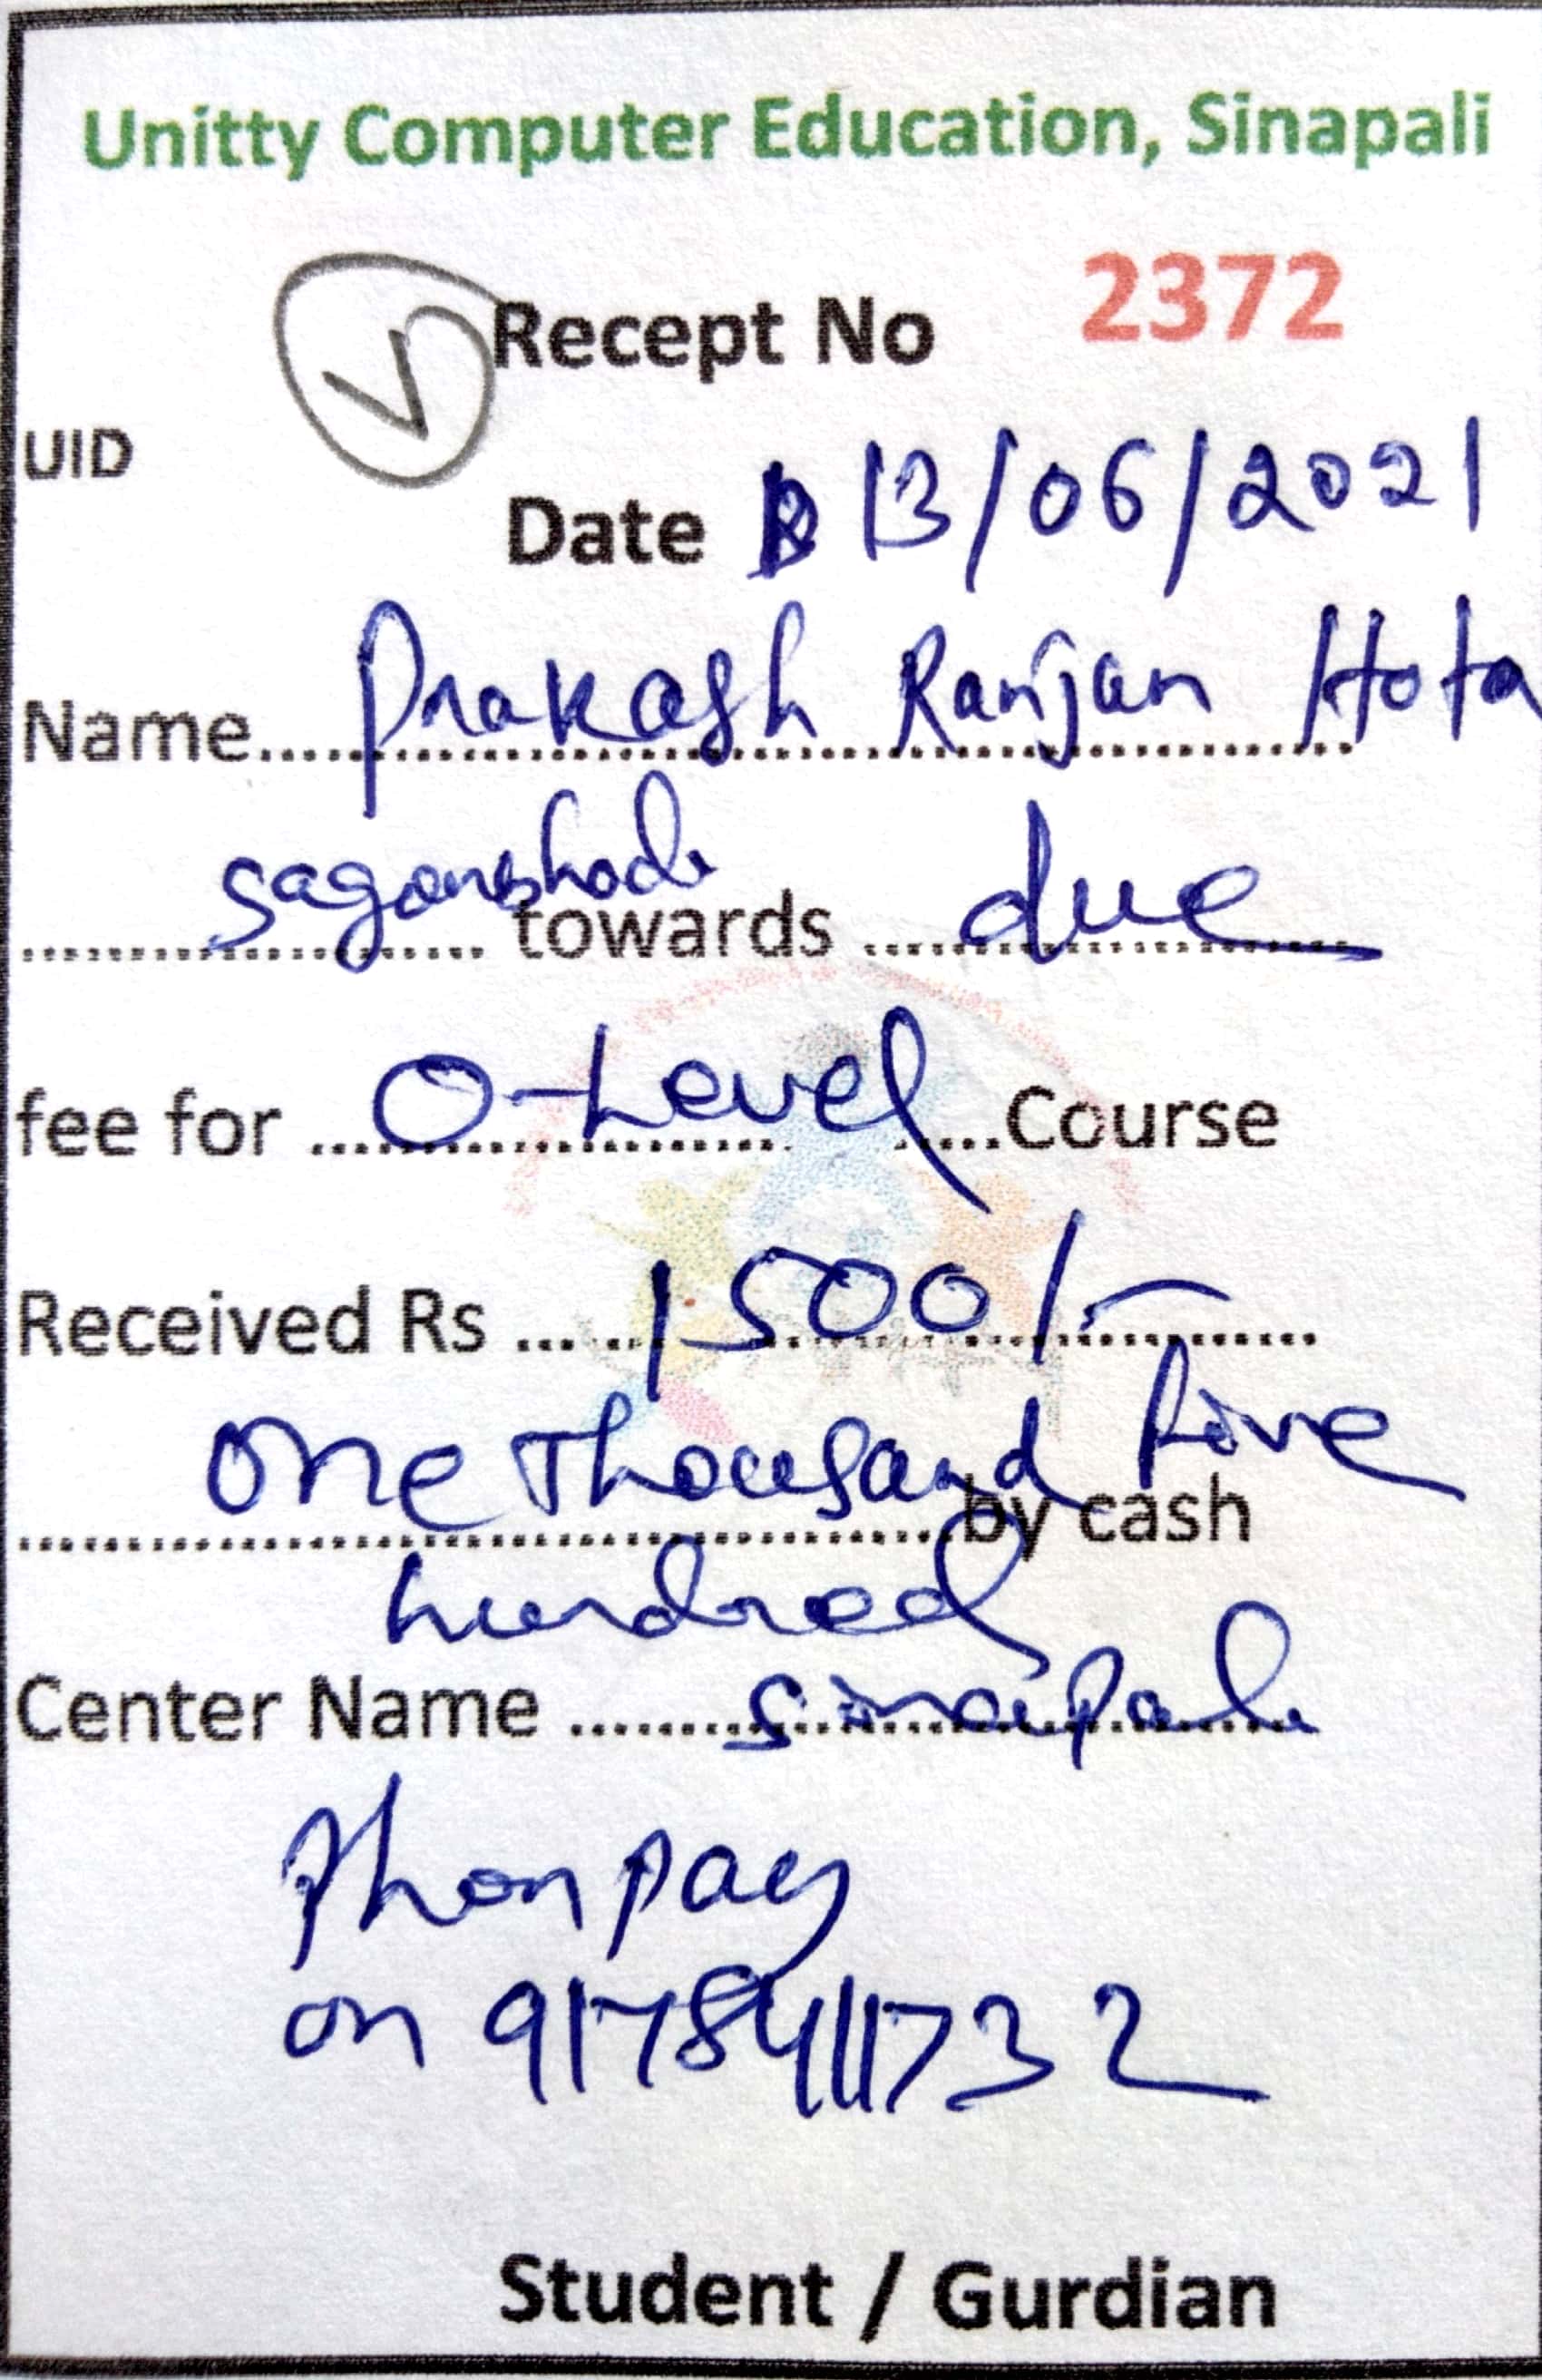 Unitty Computer Education, Sinapali
Recept No 2372
UID
Date 13/06/2021
Name Prakash Ranjan Hota
towards due
fee for O-Level Course
Received Rs 1500/-
One Thousand five
by cash
hundred
Center Name Sinapali
Phonpay
on 9178411732
Student / Gurdian